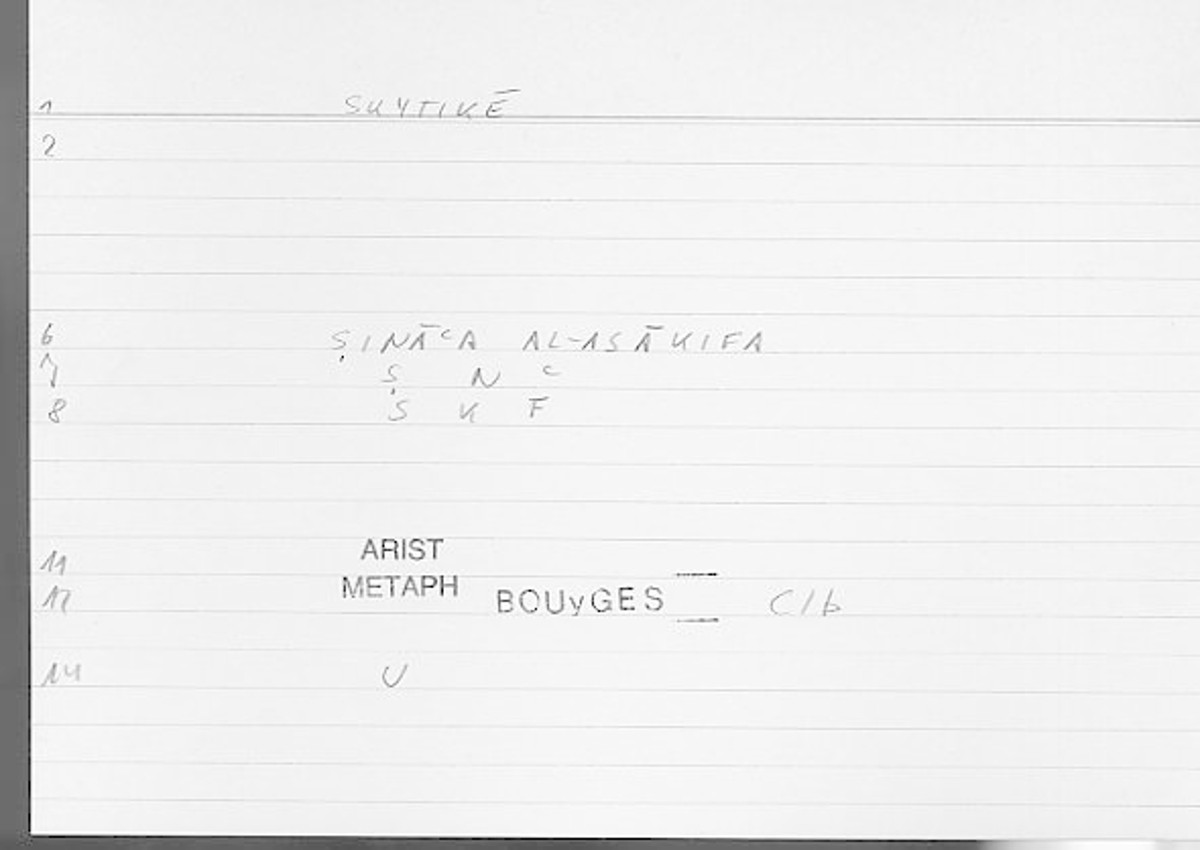 1 SKYTIKĒ
2
6 ṢINĀʿA AL-ASĀKIFA
7 Ṣ N ʿ
8 S K F
11 ARIST
12 METAPH BOUyGES C/b
14 U